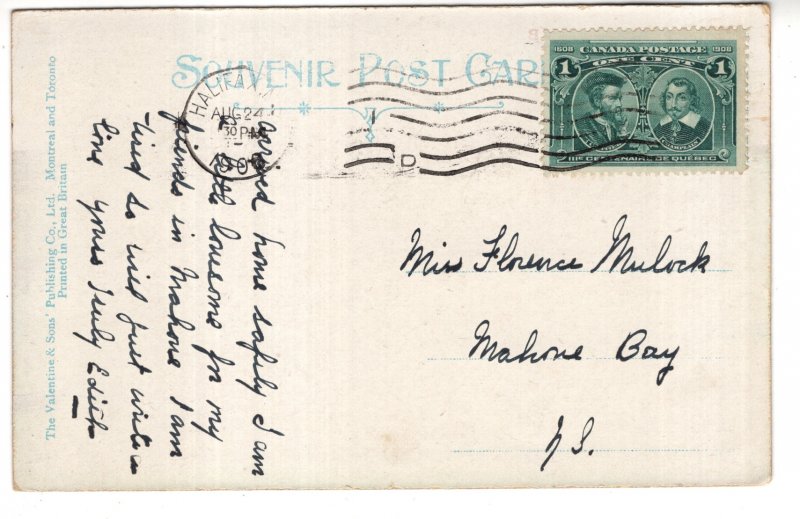 SOUVENIR POST CARD
1608 CANADA POSTAGE 1908
1 ONE CENT 1
CARTIER CHAMPLAIN
IIIe CENTENAIRE DE QUÉBEC
HALIFAX
AUG 24
30 PM
D
The Valentine & Sons' Publishing Co., Ltd. Montreal and Toronto
Printed in Great Britain
arrived home safely I am
little lonsome for my
friends in Mahone I am
tired so will just write a
line yours Truly Edith
Miss Florence Mulock
Mahone Bay
N.S.